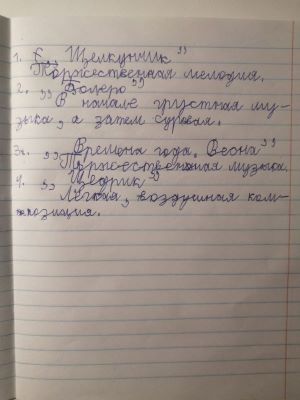 1. „Щелкунчик”
Торжественная мелодия.
2. „Болеро”
В начале грустная му-
зыка, а затем суровая.
3. „Времена года. Весна”
Торжественная музыка.
4. „Щедрик”
Лёгкая, воздушная ком-
позиция.